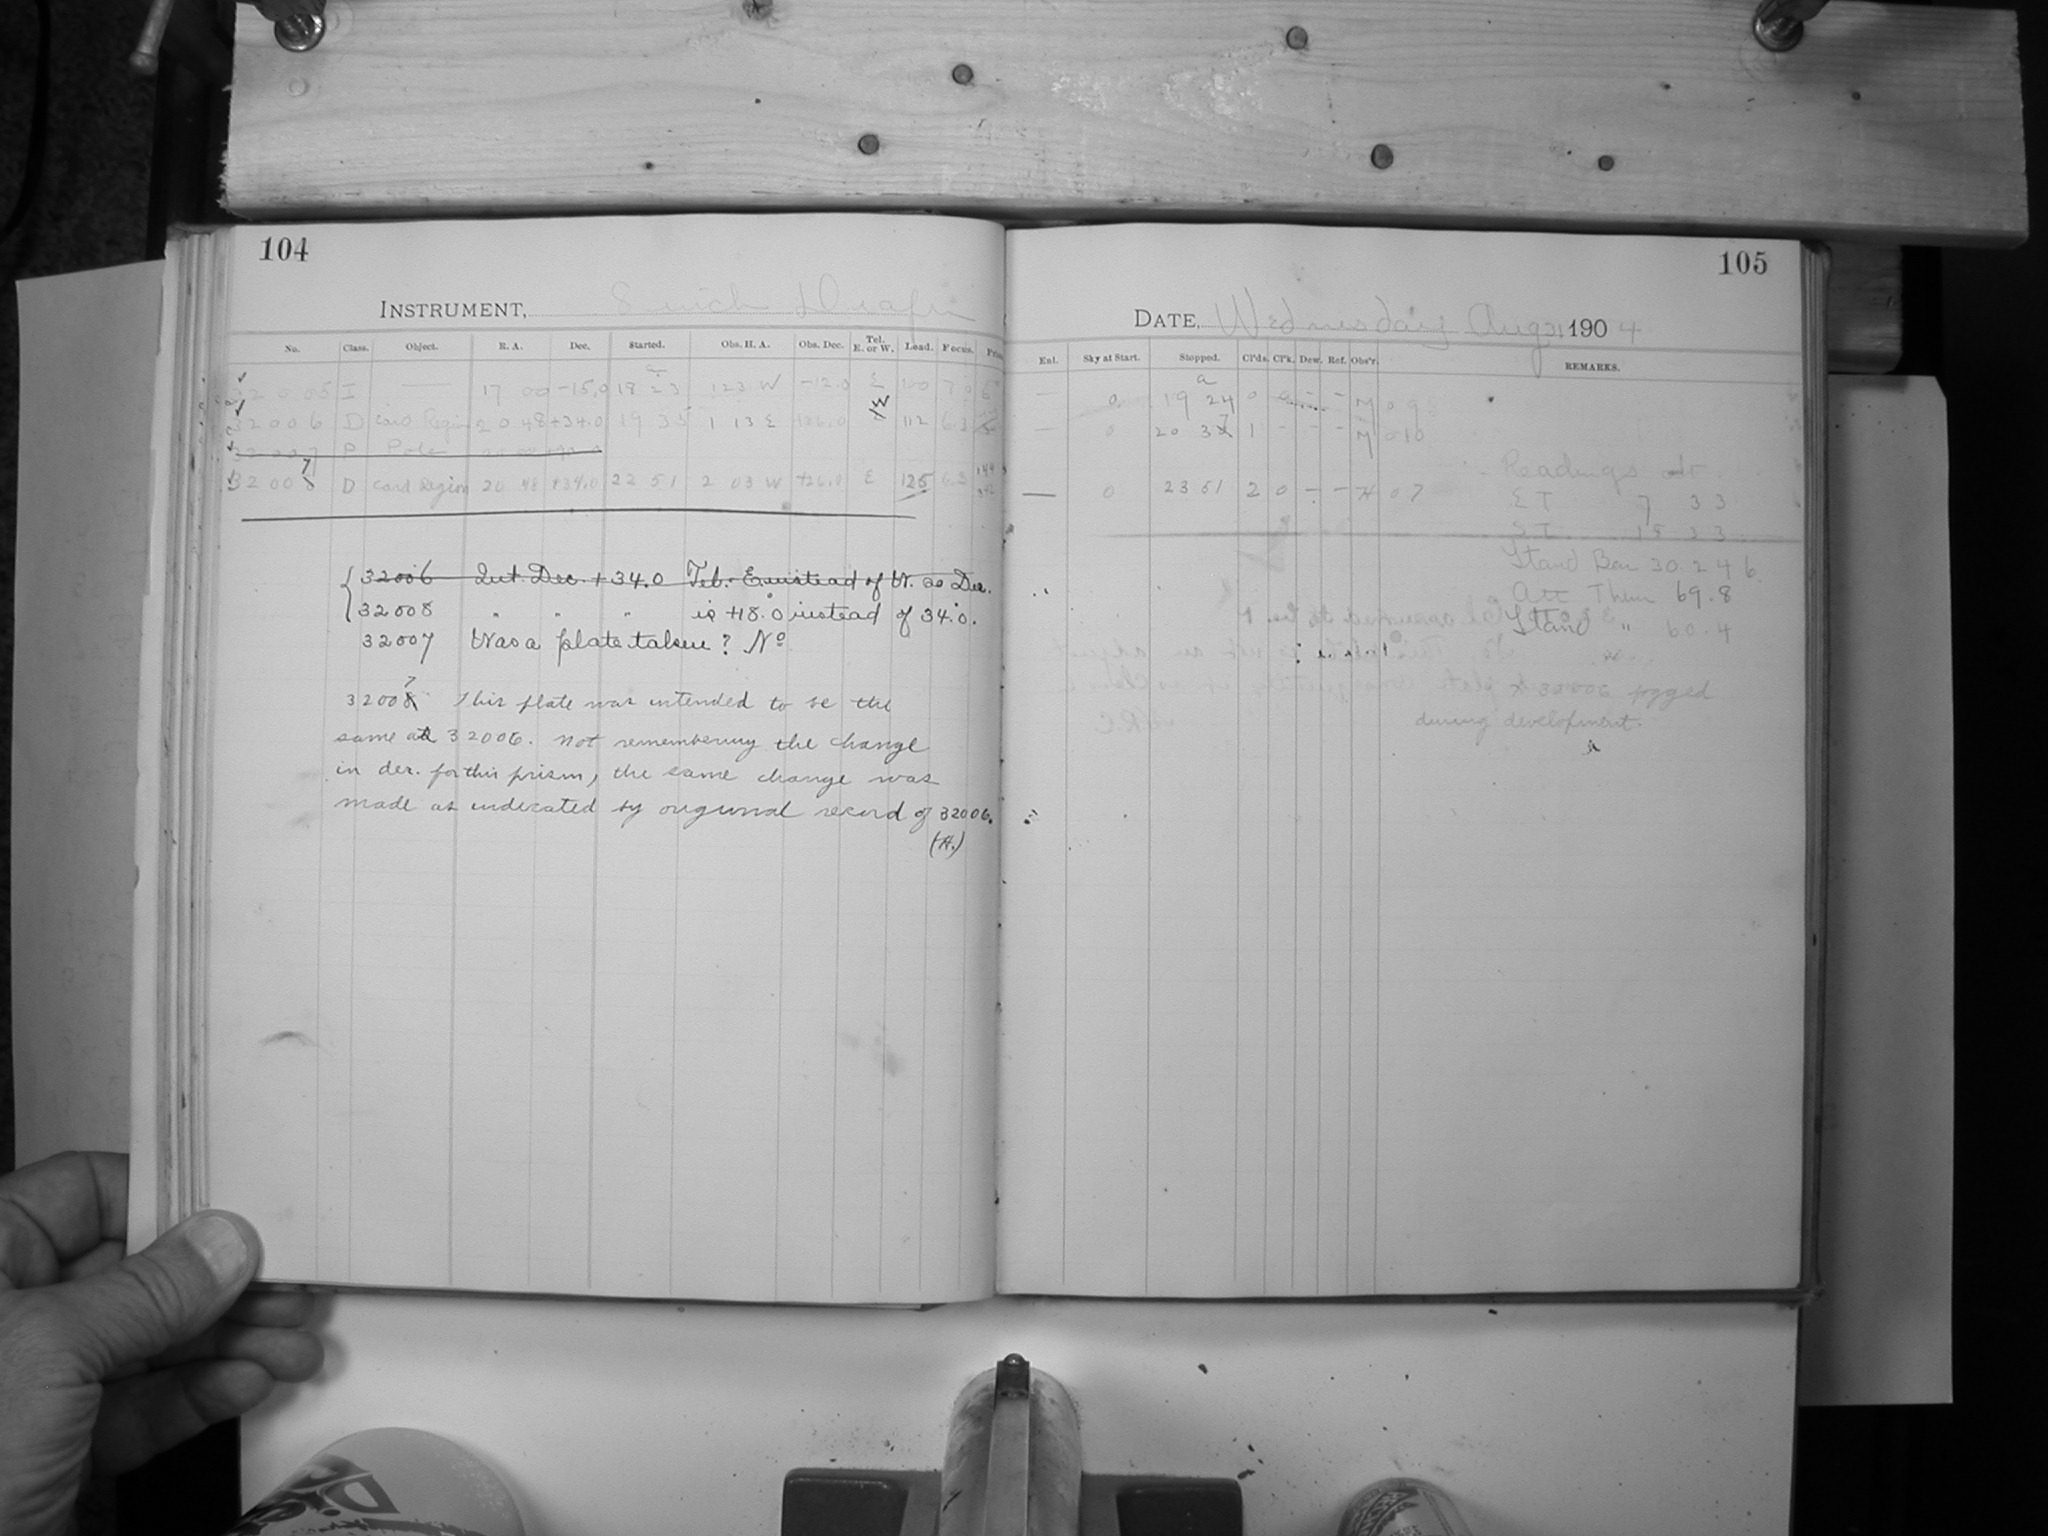 104
INSTRUMENT, 8 inch Draper
No. Class. Object. R. A. Dec. Started. Obs. H. A. Obs. Dec. Tel. E. or W. Load. Focus.
32005 I — 17 00 -15.0 18 23 1 23 W -12.0 E 100 7.0 6
32006 D Card Region 20 48 +34.0 19 35 1 13 E +26.0 W 112 6.3
32007 P Pole
32008 7 D Card Region 20 48 +34.0 22 51 2 03 W +26.0 E 125 6.3
32006 Int. Dec. +34.0 Tel. E instead of W. so Dec.
32008 " " " is +18.0 instead of 34.0.
32007 Was a plate taken? No
32008 7 This plate was intended to be the
same as 32006. Not remembering the change
in dec. for this prism, the same change was
made as indicated by original record of 32006.
(H.)
105
DATE, Wednesday Aug 31 1904
Ent. Sky at Start. Stopped. Cl'ds. Cl'k. Dew. Ref. Obs'r. REMARKS.
— 0 19 24 0 0 - - M 09
— 0 20 37 1 - - - M 010
— 0 23 51 2 0 - - H 07
Readings at
E T 7 33
S T 18 33
Stand Bar 30.246
Att Them 69.8
Stand " 60.4
32006 fogged
during development.